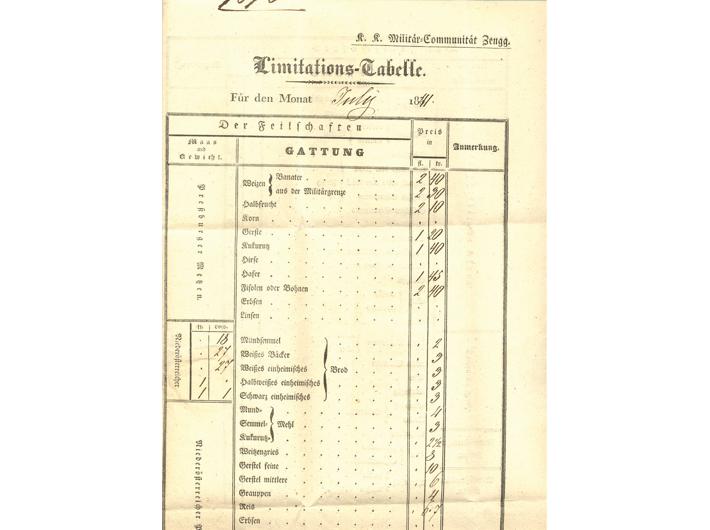 K. K. Militär-Communität Zengg.
Limitations-Tabelle.
Für den Monat July 1841.
Der Feilschaften
Preis in
Anmerkung.
Maas und Gewicht.
GATTUNG
fl. kr.
Preßburger Metzen.
Weizen { Banater . 2 40
aus der Militärgrenze 2 30
Halbfrucht . 2 10
Korn . . .
Gerste . 1 20
Kukurutz . 1 40
Hirse . . .
Hafer . 1 45
Fisolen oder Bohnen . 2 40
Erbsen . . .
Linsen . . .
Niederösterreicher
℔. Loth.
. 18 Mundsemmel } Brod . 2
. 27 Weißes Bäcker . 3
. 27 Weißes einheimisches . 3
1 . Halbweißes einheimisches . 3
1 1 Schwarz einheimisches . 3
Niederösterreicher
Mund- } Mehl . 4
Semmel- . 3
Kukurutz- . 2½
Weitzengries . 8
Gerstel feine . 10
Gerstel mittlere . 6
Graupen . 4
Reis . 6 7
Erbsen .